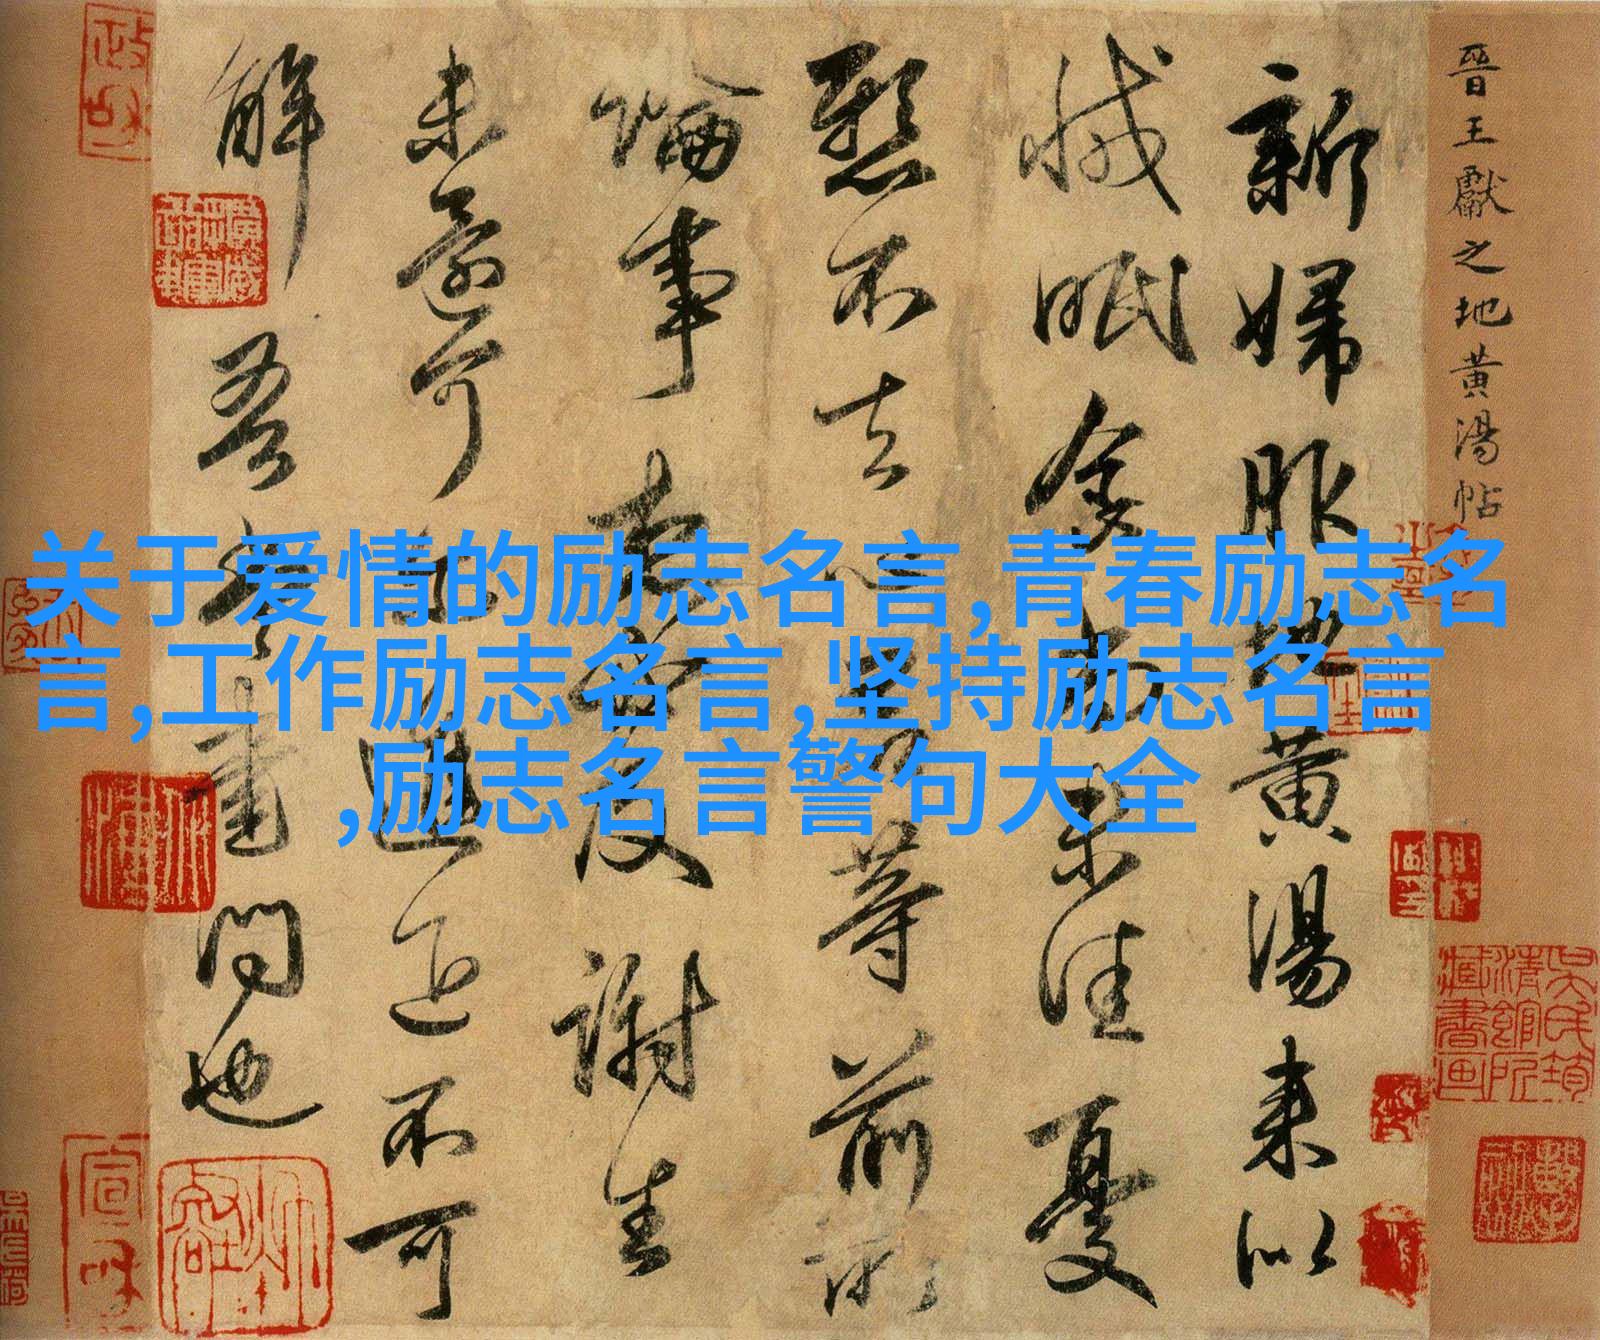 晉王獻之地黃湯帖
新婦服地黃湯來似
減眠食尚未佳憂
懸不去心君等前所
論事想必及謝生
未還可爾進退不可
解吾當書問也
关于爱情的励志名言,青春励志名
言,工作励志名言,坚持励志名言
,励志名言警句大全
政和
宣和
吳氏筠清館所藏書畫